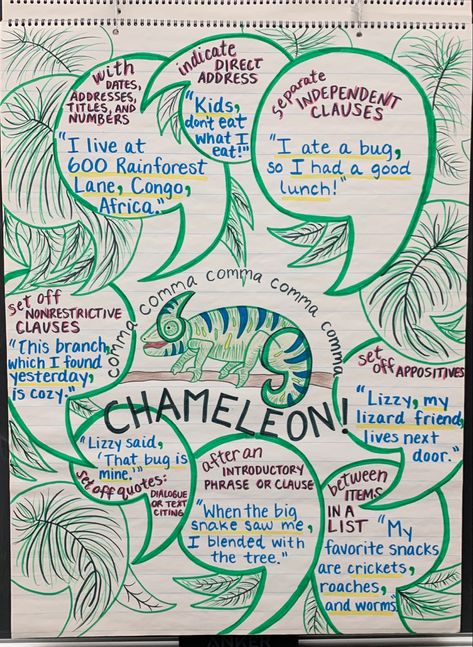 with
DATES,
ADDRESSES,
TITLES, AND
NUMBERS
"I live at
600 Rainforest
Lane, Congo,
Africa."
indicate DIRECT
ADDRESS
"Kids,
don't eat
what I
eat!"
separate
INDEPENDENT
CLAUSES
"I ate a bug,
so I had a good
lunch!"
set off
NONRESTRICTIVE
CLAUSES
"This branch,
which I found
yesterday,
is cozy."
comma comma comma comma comma
CHAMELEON!
set
off APPOSITIVES
"Lizzy, my
lizard friend,
lives next
door."
"Lizzy said,
'That bug is
mine.'"
set off quotes:
DIALOGUE
OR TEXT
CITING
after an
INTRODUCTORY
PHRASE OR CLAUSE
"When the big
snake saw me,
I blended with
the tree."
between
ITEMS
IN A
LIST
"My
favorite snacks
are crickets,
roaches,
and worms."